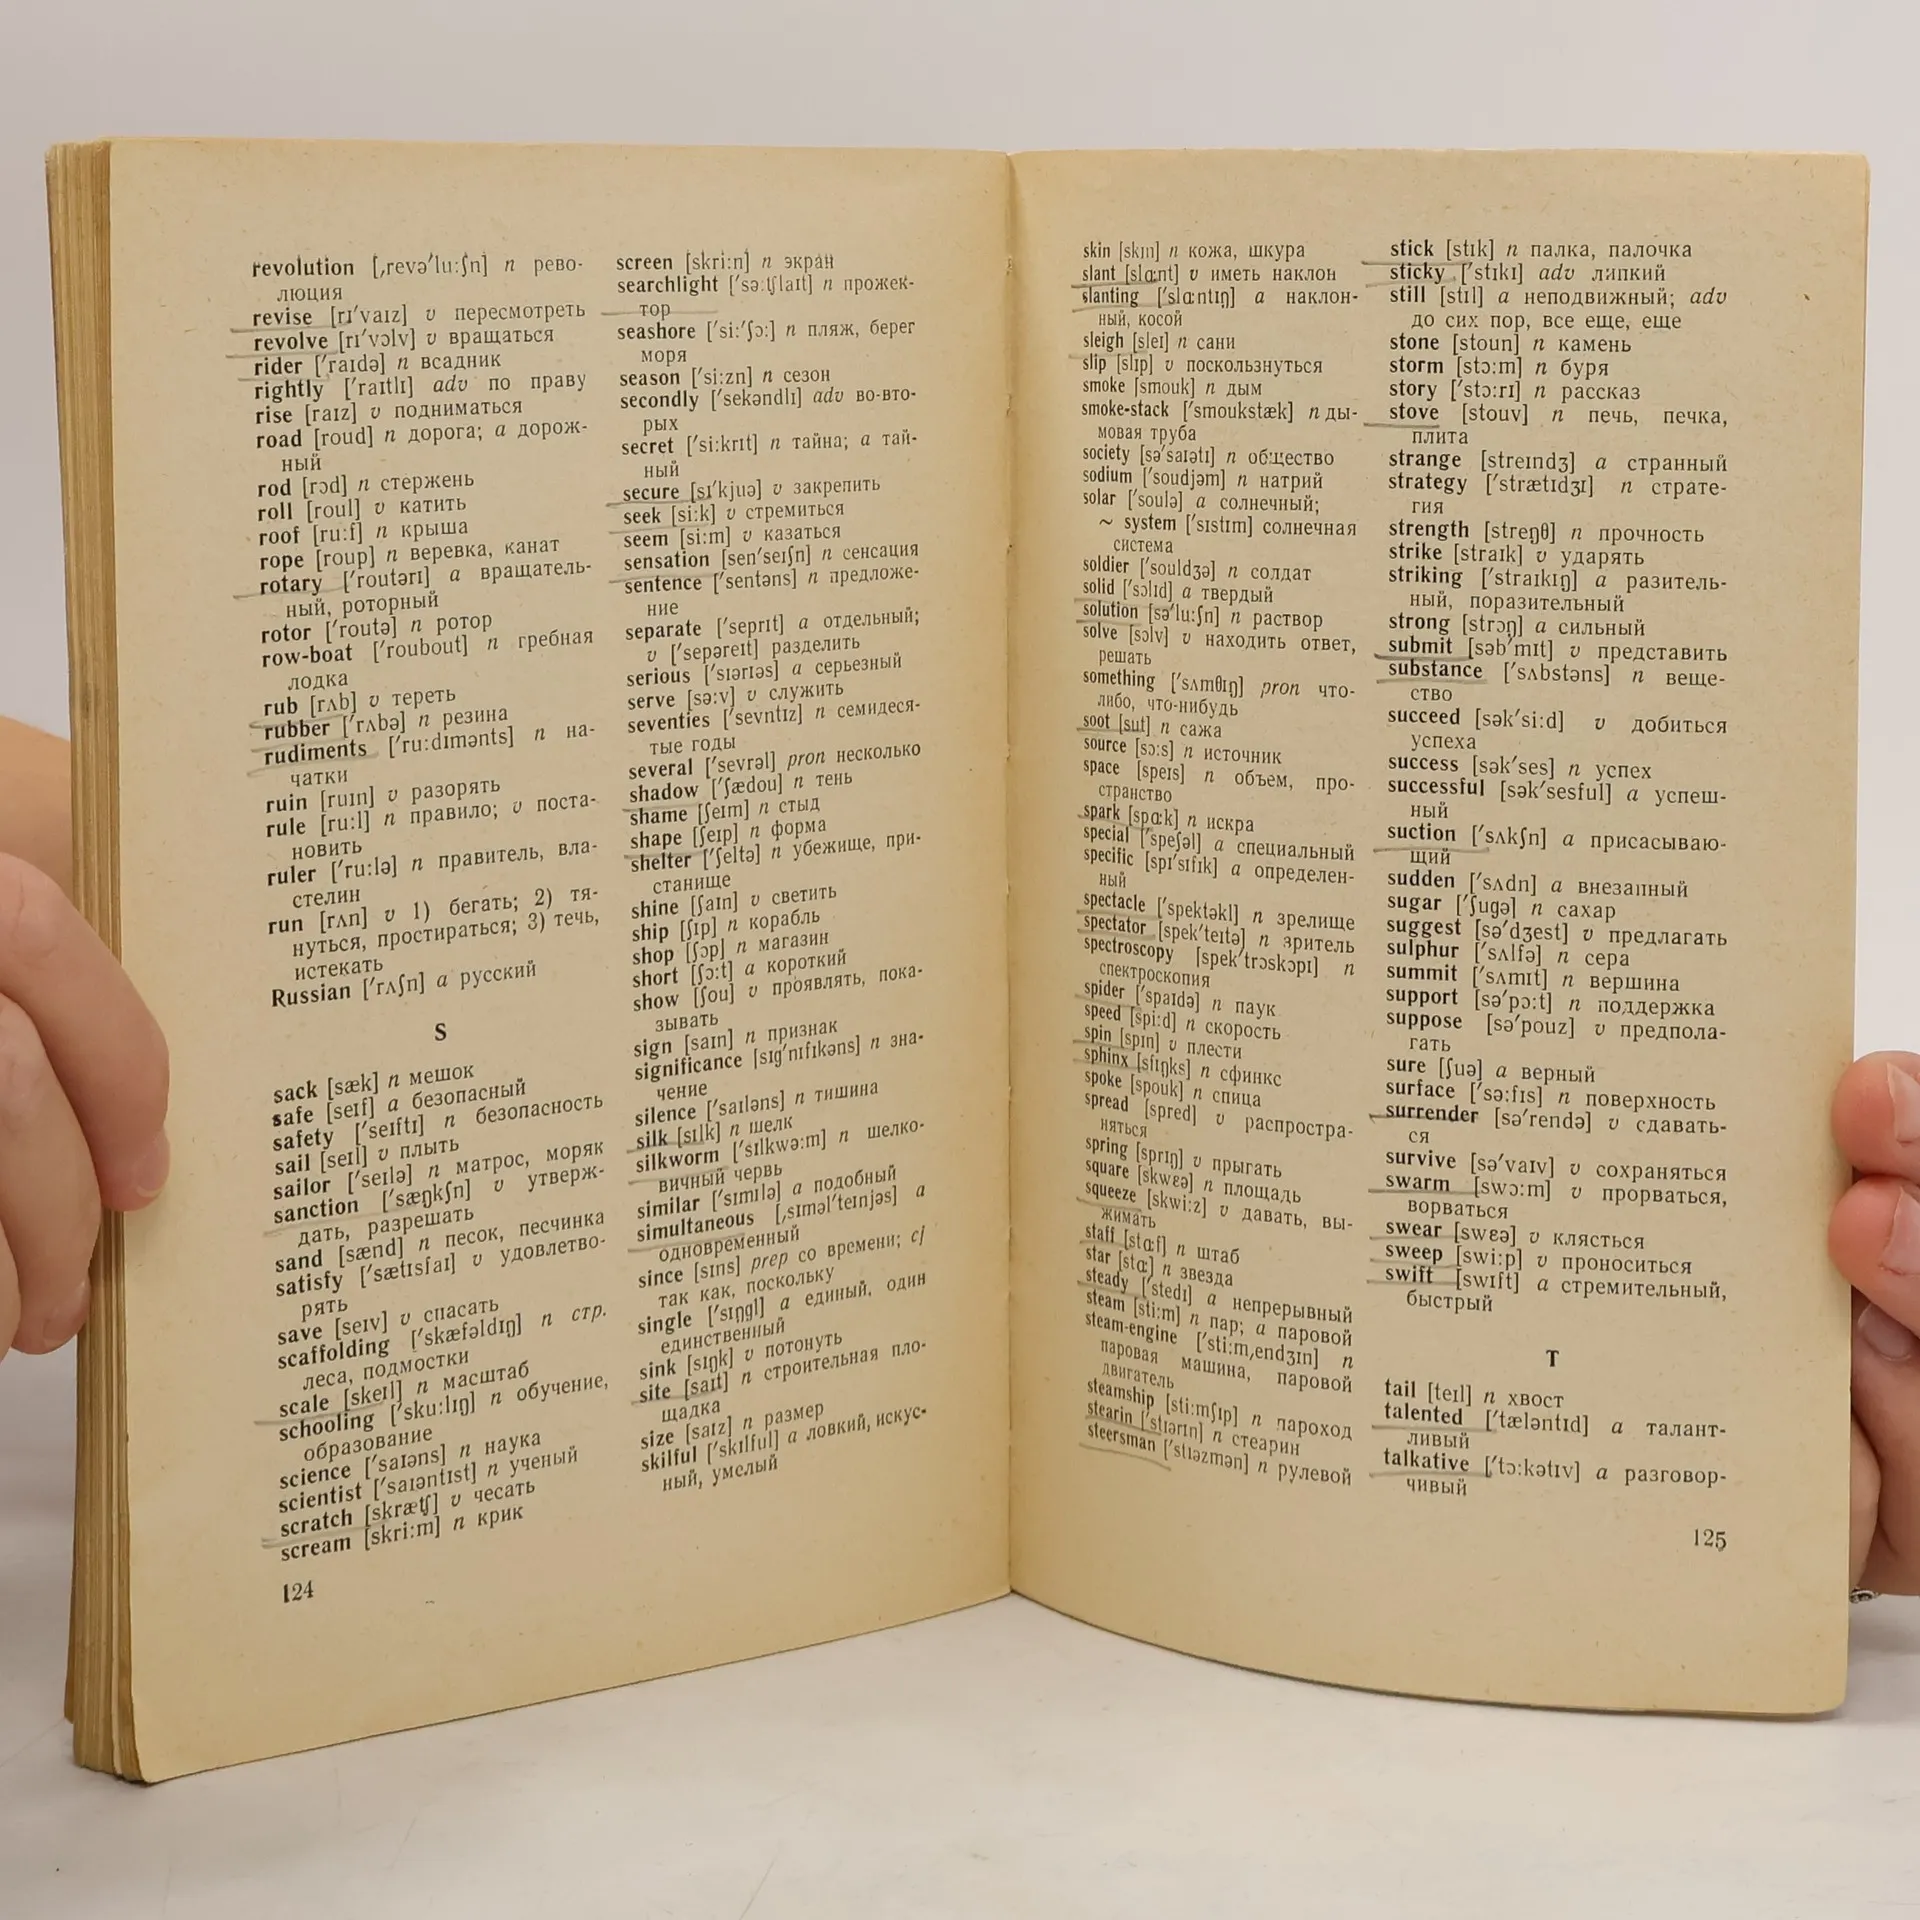 revolution [ˌrevə′lu:ʃn] n рево-
люция
revise [rɪ′vaɪz] v пересмотреть
revolve [rɪ′vɔlv] v вращаться
rider [′raɪdə] n всадник
rightly [′raɪtlɪ] adv по праву
rise [raɪz] v подниматься
road [roud] n дорога; a дорож-
ный
rod [rɔd] n стержень
roll [roul] v катить
roof [ru:f] n крыша
rope [roup] n веревка, канат
rotary [′routərɪ] a вращатель-
ный, роторный
rotor [′routə] n ротор
row-boat [′roubout] n гребная
лодка
rub [rʌb] v тереть
rubber [′rʌbə] n резина
rudiments [′ru:dɪmənts] n на-
чатки
ruin [ruɪn] v разорять
rule [ru:l] n правило; v поста-
новить
ruler [′ru:lə] n правитель, вла-
стелин
run [rʌn] v 1) бегать; 2) тя-
нуться, простираться; 3) течь,
истекать
Russian [′rʌʃn] a русский
S
sack [sæk] n мешок
safe [seɪf] a безопасный
safety [′seɪftɪ] n безопасность
sail [seɪl] v плыть
sailor [′seɪlə] n матрос, моряк
sanction [′sæŋkʃn] v утверж-
дать, разрешать
sand [sænd] n песок, песчинка
satisfy [′sætɪsfaɪ] v удовлетво-
рять
save [seɪv] v спасать
scaffolding [′skæfəldɪŋ] n стр.
леса, подмостки
scale [skeɪl] n масштаб
schooling [′sku:lɪŋ] n обучение,
образование
science [′saɪəns] n наука
scientist [′saɪəntɪst] n ученый
scratch [skrætʃ] v чесать
scream [skri:m] n крик
124
screen [skri:n] n экран
searchlight [′sə:tʃlaɪt] n прожек-
тор
seashore [′si:′ʃɔ:] n пляж, берег
моря
season [′si:zn] n сезон
secondly [′sekəndlɪ] adv во-вто-
рых
secret [′si:krɪt] n тайна; a тай-
ный
secure [sɪ′kjuə] v закрепить
seek [si:k] v стремиться
seem [si:m] v казаться
sensation [sen′seɪʃn] n сенсация
sentence [′sentəns] n предложе-
ние
separate [′seprɪt] a отдельный;
v [′sepəreɪt] разделить
serious [′sɪərɪəs] a серьезный
serve [sə:v] v служить
seventies [′sevntɪz] n семидеся-
тые годы
several [′sevrəl] pron несколько
shadow [′ʃædou] n тень
shame [ʃeɪm] n стыд
shape [ʃeɪp] n форма
shelter [′ʃeltə] n убежище, при-
станище
shine [ʃaɪn] v светить
ship [ʃɪp] n корабль
shop [ʃɔp] n магазин
short [ʃɔ:t] a короткий
show [ʃou] v проявлять, пока-
зывать
sign [saɪn] n признак
significance [sɪg′nɪfɪkəns] n зна-
чение
silence [′saɪləns] n тишина
silk [sɪlk] n шелк
silkworm [′sɪlkwə:m] n шелко-
вичный червь
similar [′sɪmɪlə] a подобный
simultaneous [ˌsɪməl′teɪnjəs] a
одновременный
since [sɪns] prep со времени; cj
так как, поскольку
single [′sɪŋgl] a единый, один
единственный
sink [sɪŋk] v потонуть
site [saɪt] n строительная пло-
щадка
size [saɪz] n размер
skilful [′skɪlful] a ловкий, искус-
ный, умелый
skin [skɪn] n кожа, шкура
slant [slɑ:nt] v иметь наклон
slanting [′slɑ:ntɪŋ] a наклон-
ный, косой
sleigh [sleɪ] n сани
slip [slɪp] v поскользнуться
smoke [smouk] n дым
smoke-stack [′smoukstæk] n ды-
мовая труба
society [sə′saɪətɪ] n общество
sodium [′soudjəm] n натрий
solar [′soulə] a солнечный;
~ system [′sɪstɪm] солнечная
система
soldier [′souldʒə] n солдат
solid [′sɔlɪd] a твердый
solution [sə′lu:ʃn] n раствор
solve [sɔlv] v находить ответ,
решать
something [′sʌmθɪŋ] pron что-
либо, что-нибудь
soot [sut] n сажа
source [sɔ:s] n источник
space [speɪs] n объем, про-
странство
spark [spɑ:k] n искра
special [′speʃəl] a специальный
specific [spɪ′sɪfɪk] a определен-
ный
spectacle [′spektəkl] n зрелище
spectator [spek′teɪtə] n зритель
spectroscopy [spek′trɔskəpɪ] n
спектроскопия
spider [′spaɪdə] n паук
speed [spi:d] n скорость
spin [spɪn] v плести
sphinx [sfɪŋks] n сфинкс
spoke [spouk] n спица
spread [spred] v распростра-
няться
spring [sprɪŋ] v прыгать
square [skwɛə] n площадь
squeeze [skwi:z] v давать, вы-
жимать
staff [stɑ:f] n штаб
star [stɑ:] n звезда
steady [′stedɪ] a непрерывный
steam [sti:m] n пар; a паровой
steam-engine [′sti:mˌendʒɪn] n
паровая машина, паровой
двигатель
steamship [sti:mʃɪp] n пароход
stearin [′stɪərɪn] n стеарин
steersman [′stɪəzmən] n рулевой
stick [stɪk] n палка, палочка
sticky [′stɪkɪ] adv липкий
still [stɪl] a неподвижный; adv
до сих пор, все еще, еще
stone [stoun] n камень
storm [stɔ:m] n буря
story [′stɔ:rɪ] n рассказ
stove [stouv] n печь, печка,
плита
strange [streɪndʒ] a странный
strategy [′strætɪdʒɪ] n страте-
гия
strength [streŋθ] n прочность
strike [straɪk] v ударять
striking [′straɪkɪŋ] a разитель-
ный, поразительный
strong [strɔŋ] a сильный
submit [səb′mɪt] v представить
substance [′sʌbstəns] n веще-
ство
succeed [sək′si:d] v добиться
успеха
success [sək′ses] n успех
successful [sək′sesful] a успеш-
ный
suction [′sʌkʃn] a присасываю-
щий
sudden [′sʌdn] a внезапный
sugar [′ʃugə] n сахар
suggest [sə′dʒest] v предлагать
sulphur [′sʌlfə] n сера
summit [′sʌmɪt] n вершина
support [sə′pɔ:t] n поддержка
suppose [sə′pouz] v предпола-
гать
sure [ʃuə] a верный
surface [′sə:fɪs] n поверхность
surrender [sə′rendə] v сдавать-
ся
survive [sə′vaɪv] v сохраняться
swarm [swɔ:m] v прорваться,
ворваться
swear [swɛə] v клясться
sweep [swi:p] v проноситься
swift [swɪft] a стремительный,
быстрый
T
tail [teɪl] n хвост
talented [′tæləntɪd] a талант-
ливый
talkative [′tɔ:kətɪv] a разговор-
чивый
125